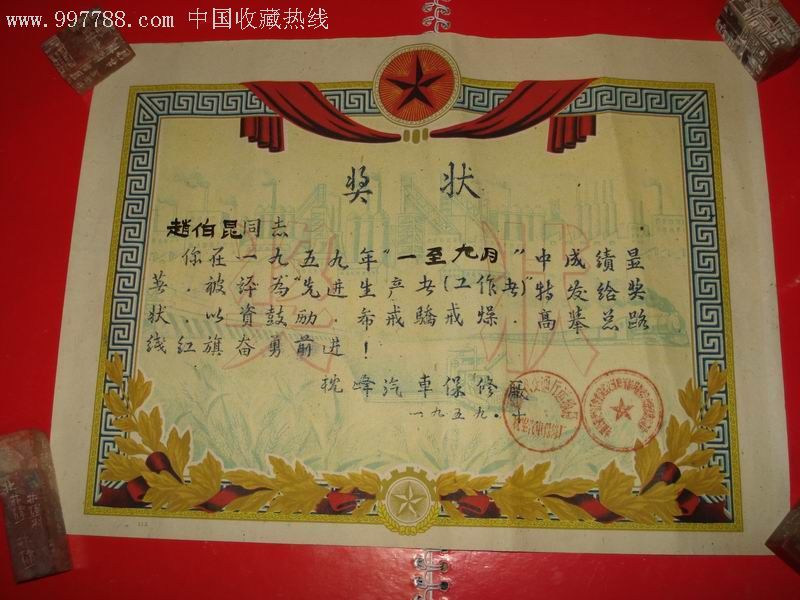 www.997788.com 中国收藏热线
奖状
趙伯昆同志
你在一九五九年"一至九月"中成績显
著．被评为"先进生产者(工作者)"特发给奖
状．以資鼓励．希戒驕戒燥．高举总路
线红旗奋勇前进！
峰汽車保修厰
一九五九．十
奖状